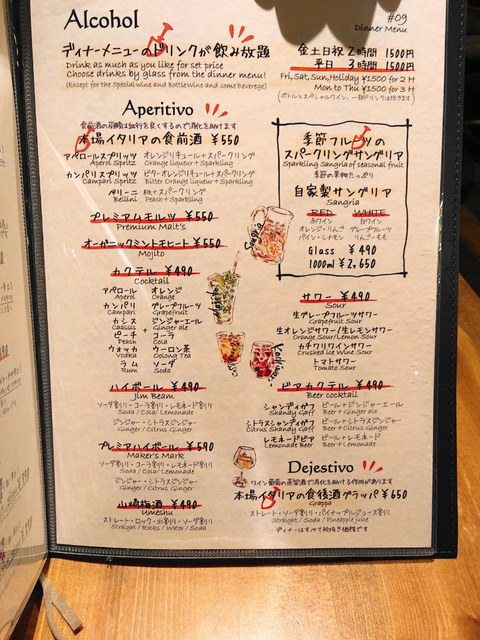 Alcohol
#09
Dinner Menu
ディナーメニューのドリンクが飲み放題
Drink as much as you like for set price
Choose drinks by glass from the dinner menu!
(Except for the Special wine and BottleWine and some beverege)
金土日祝 2時間 1500円
平日 3時間 1500円
Fri, Sat, Sun, Holiday ¥1500 for 2 H
Mon to Thu ¥1500 for 3 H
Aperitivo
本場イタリアの食前酒 ¥550
アペロールスプリッツ オレンジリキュール+スパークリング
Aperol Spritz Orange liqueur + Sparkling
カンパリスプリッツ ビターオレンジリキュール+スパークリング
Campari Spritz Bitter Orange liqueur + Sparkling
ベリーニ 桃+スパークリング
Bellini Peach + Sparkling
プレミアムモルツ ¥550
Premium Malt's
オーガニックミントモヒート ¥550
Mojito
カクテル ¥490
Cocktail
アペロール オレンジ
Aperol Orange
カンパリ グレープフルーツ
Campari Grapefruit
カシス ジンジャーエール
Caassis Ginger ale
+
ピーチ コーラ
Peach Cola
ウォッカ ウーロン茶
Vodka Oolong Tea
ラム ソーダ
Rum Soda
ハイボール ¥490
Jim Beam
ソーダ割り・コーラ割り・レモネード割り
Soda / Cola / Lemonade
ジンジャー・シトラスジンジャー
Ginger / Citrus Ginger
プレミアハイボール ¥590
Maker's Mark
ソーダ割り・コーラ割り・レモネード割り
Soda / Cola / Lemonade
ジンジャー・シトラスジンジャー
Ginger / Citrus Ginger
山崎梅酒 ¥490
Umeshu
ストレート・ロック・水割り・ソーダ割り
Straight / Rocks / Water / Soda
季節フルーツの
スパークリングサングリア
Sparkling Sangria of seasonal fruit
季節の果物たっぷり
自家製サングリア
Sangria
RED WHITE
赤ワイン 白ワイン
オレンジ・りんご グレープフルーツ
パイン・シナモン りんご・もも
Glass ¥490
1000ml ¥2,650
Sangria
サワー ¥490
Sour
生グレープフルーツサワー
Grapefruit Sour
生オレンジサワー/生レモンサワー
Orange Sour/Lemon Sour
カチワリワインサワー
Crushed Ice Wine Sour
トマトサワー
Tomato Sour
ビアカクテル ¥490
Beer cocktail
シャンディガフ ビール+ジンジャーエール
Shandy Gaff Beer + Ginger ale
シトラスシャンディガフ ビール+シトラスジンジャー
Citrus Shandy Gaff Beer + Citrus Ginger
レモネードビア ビール+レモネード
Lemonade Beer Beer + Lemonade
Dejestivo
本場イタリアの食後酒グラッパ ¥650
Grappa
ストレート・ソーダ割り・パイナップルジュース割り
Straight / Soda / Pineapple juice
ディナーはすべて税抜き価格です